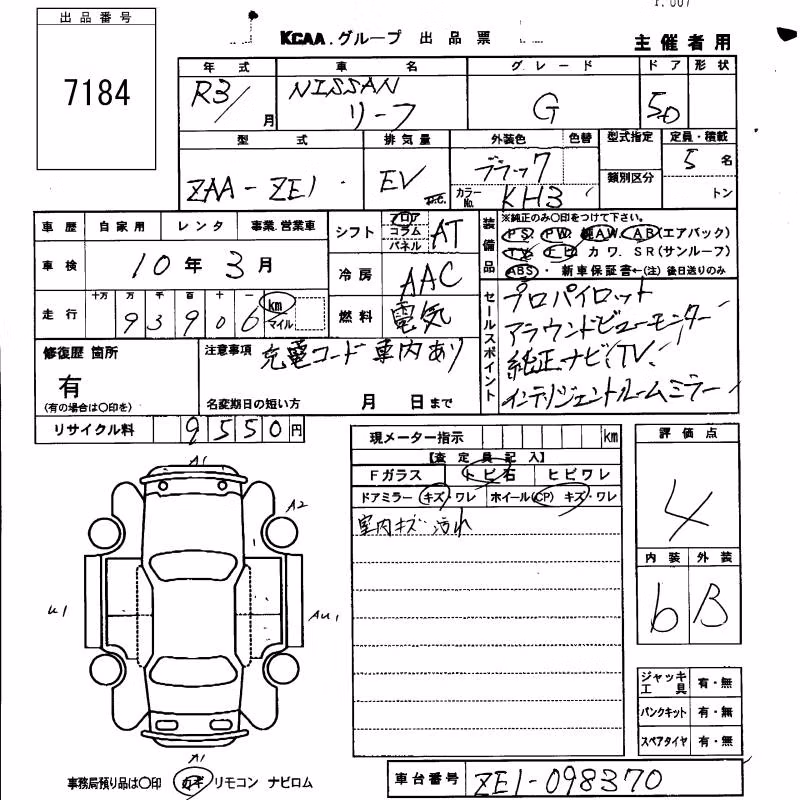 P.007
出品番号
7184
KCAA.グループ 出品票
主催者用
年式 車名 グレード ドア 形状
R3/ 月 NISSAN リーフ G 5D
型式 排気量 外装色 色替 型式指定 定員・積載
ZAA-ZE1 EV ブラック 5名
カラーNo. KH3 類別区分 トン
車歴 自家用 レンタ 事業.営業車
車検 10年3月
走行 十万 万 千 百 十 一 km マイル
93906
シフト フロア コラム パネル AT
冷房 AAC
燃料 電気
装備品
※純正のみ〇印をつけて下さい。
PS PW 純AW AB(エアバック)
TV ナビ カワ. SR(サンルーフ)
ABS・新車保証書←(注)後日送りのみ
セールスポイント
プロパイロット
アラウンドビューモニター
純正ナビ/TV
インテリジェントルームミラー
修復歴 箇所
有
(有の場合は〇印を)
注意事項 充電コード車内あり
名変期日の短い方 月 日まで
リサイクル料 9550円
現メーター指示 km
【査定員記入】
Fガラス トビ石 ヒビワレ
ドアミラー キズ・ワレ ホイール(CP) キズ・ワレ
室内キズ 汚れ
評価点
4
内装 外装
6 B
A1
A2
U1
AU1
A1
ジャッキ工具 有・無
パンクキット 有・無
スペアタイヤ 有・無
事務局預り品は〇印 カギ リモコン ナビロム
車台番号 ZE1-098370